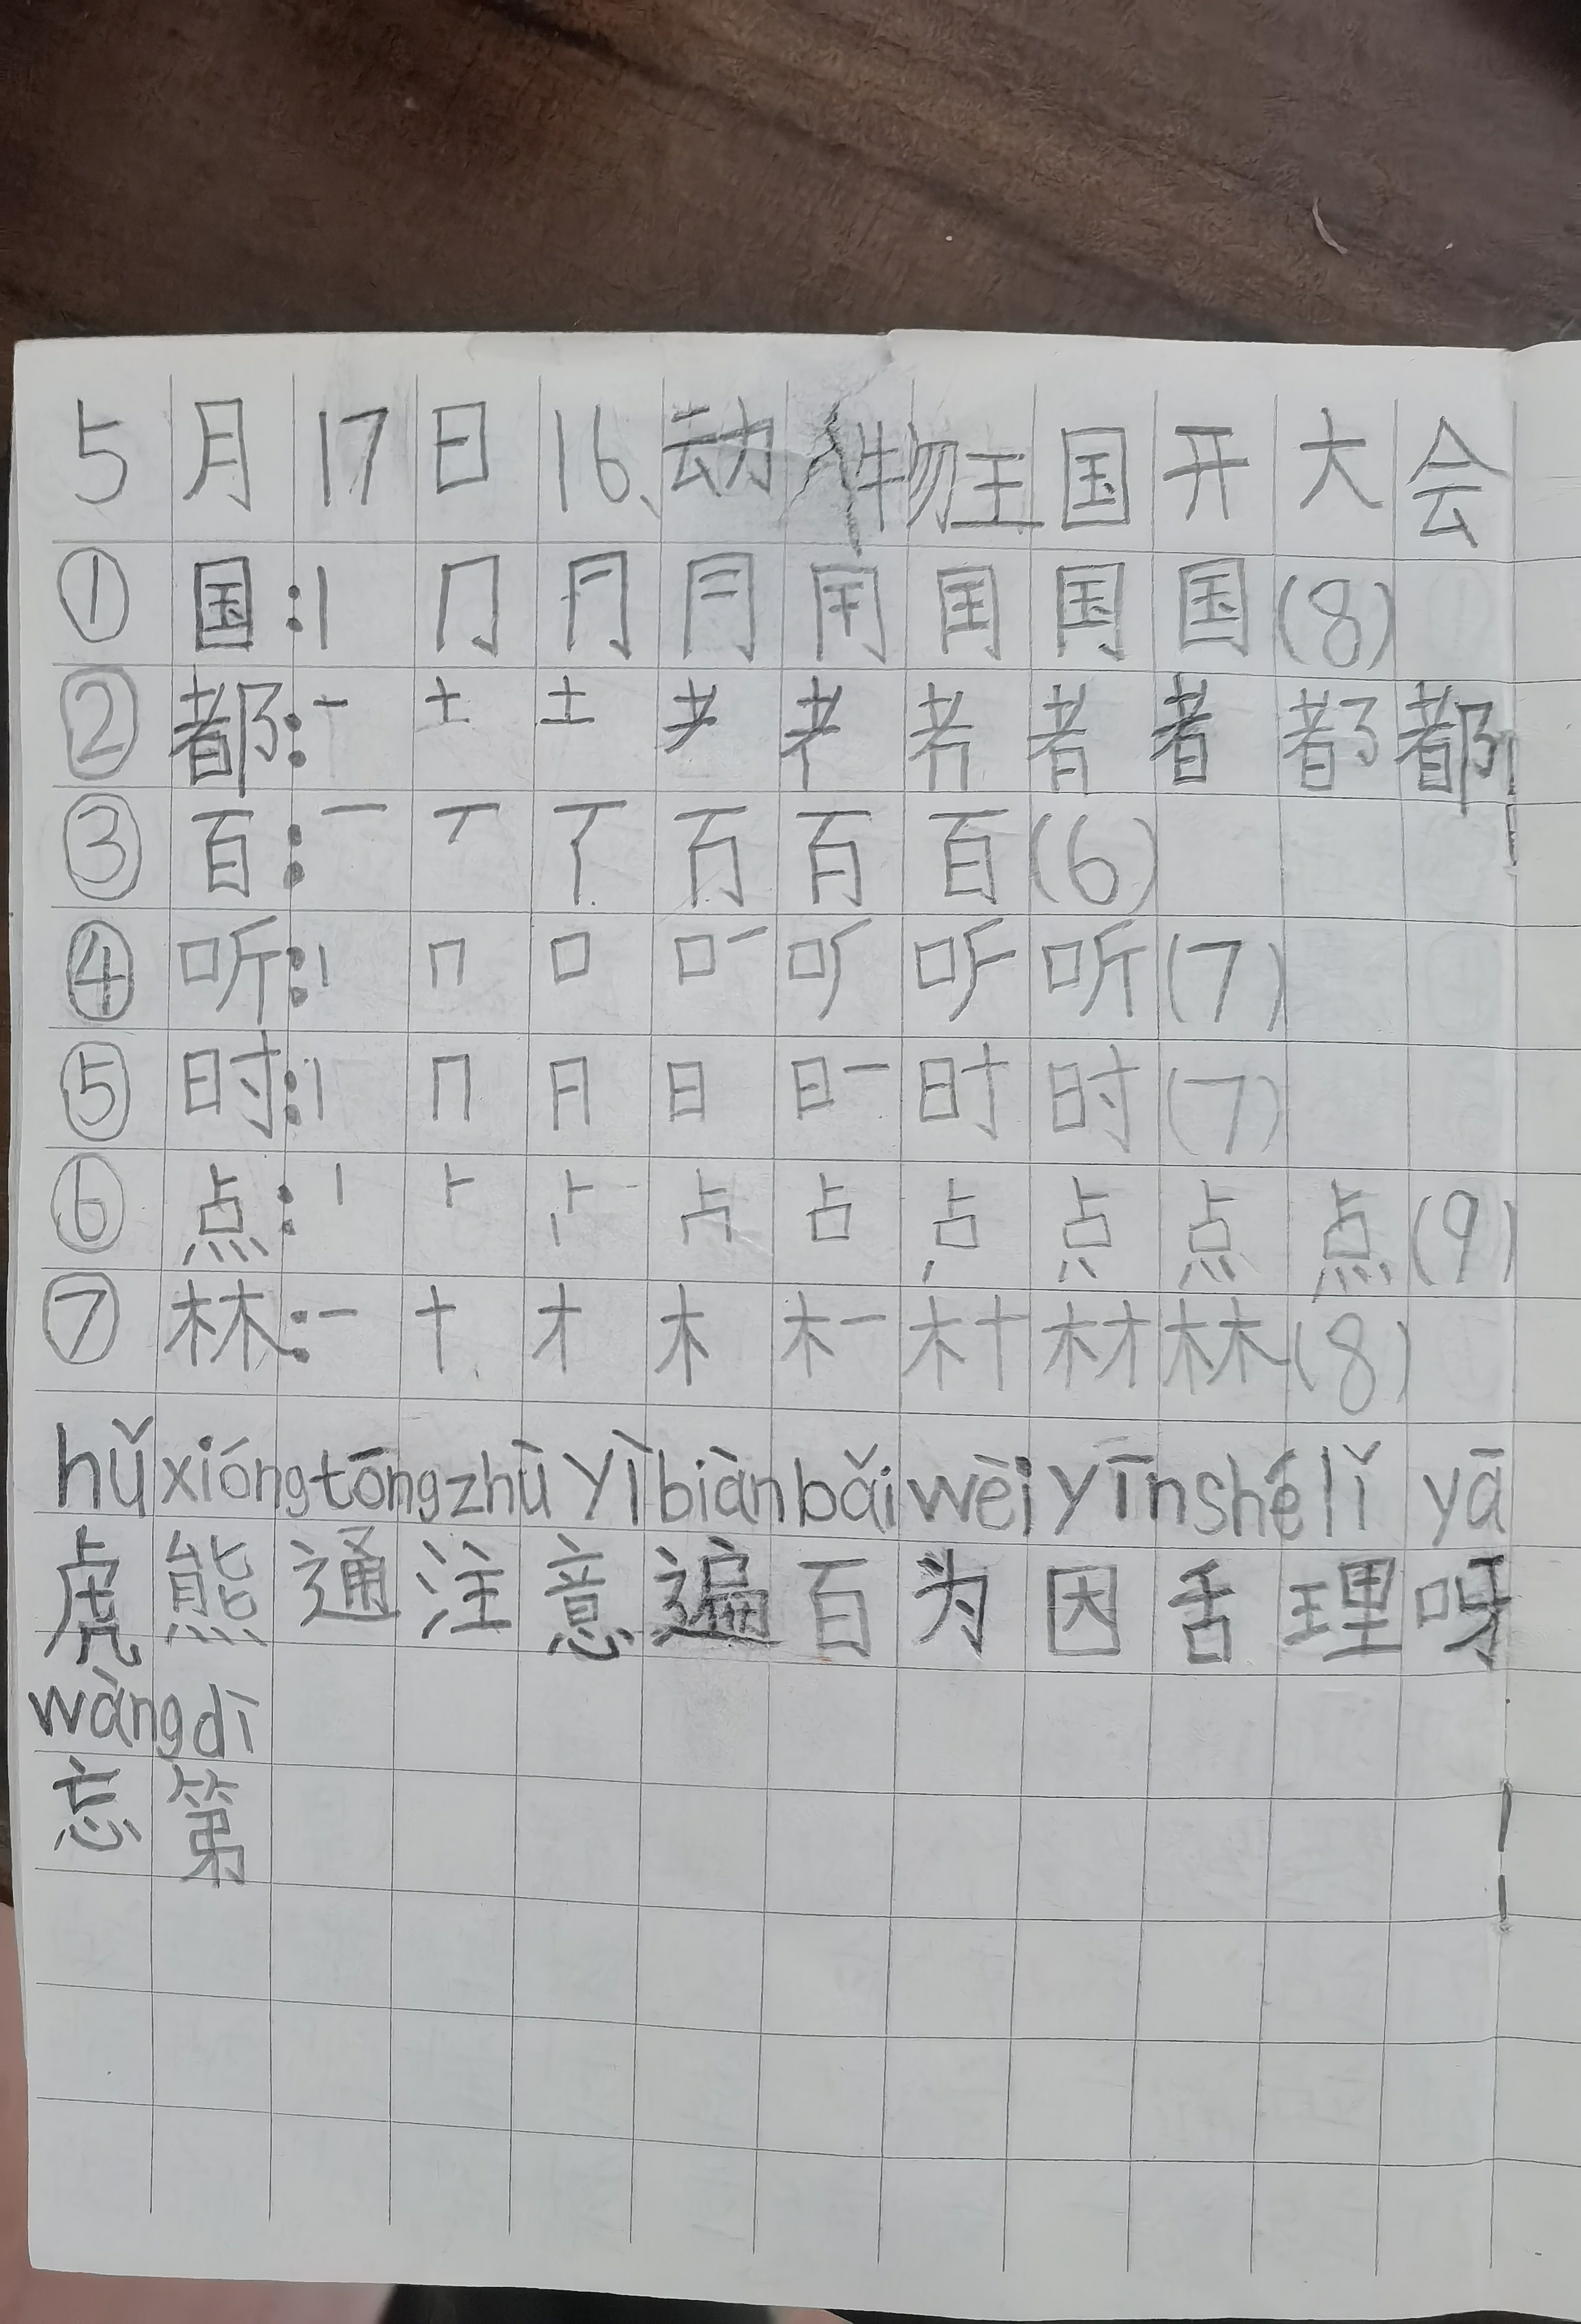 5月17日16、动物王国开大会
①国:丨冂冂月用国国国(8)
②都:一土土耂耂者者者都都
③百:一丆丆百百百(6)
④听:丨冂口口一叮听听(7)
⑤时:丨冂日日日一时时(7)
⑥点:丨⺊⺊占占点点点点(9)
⑦林:一十才木木一村林林(8)
hǔ xióng tōng zhù yì biàn bǎi wèi yīn shé lǐ yā
虎熊通注意遍百为因舌理呀
wàng dì
忘第